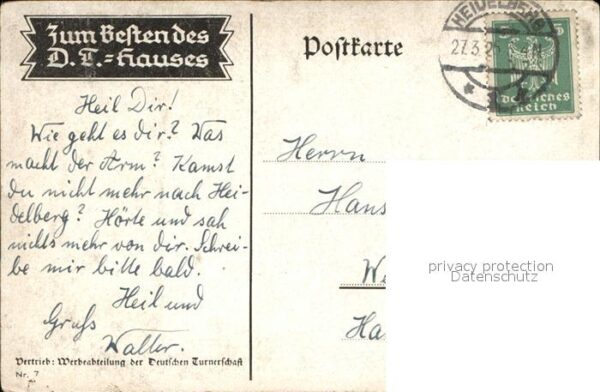 Zum Besten des
D. T.-Hauses
Postkarte
HEIDELBERG
27.3.2
Deutsches
Reich
Heil Dir!
Wie geht es dir? Was
macht der Arm? Kamst
du nicht mehr nach Hei-
delberg? Hörte und sah
nichts mehr von dir. Schrei-
be mir bitte bald.
Heil und
Gruß
Walter.
Herrn
Hans
Vertrieb: Werbeabteilung der Deutschen Turnerschaft
Nr. 7
privacy protection
Datenschutz